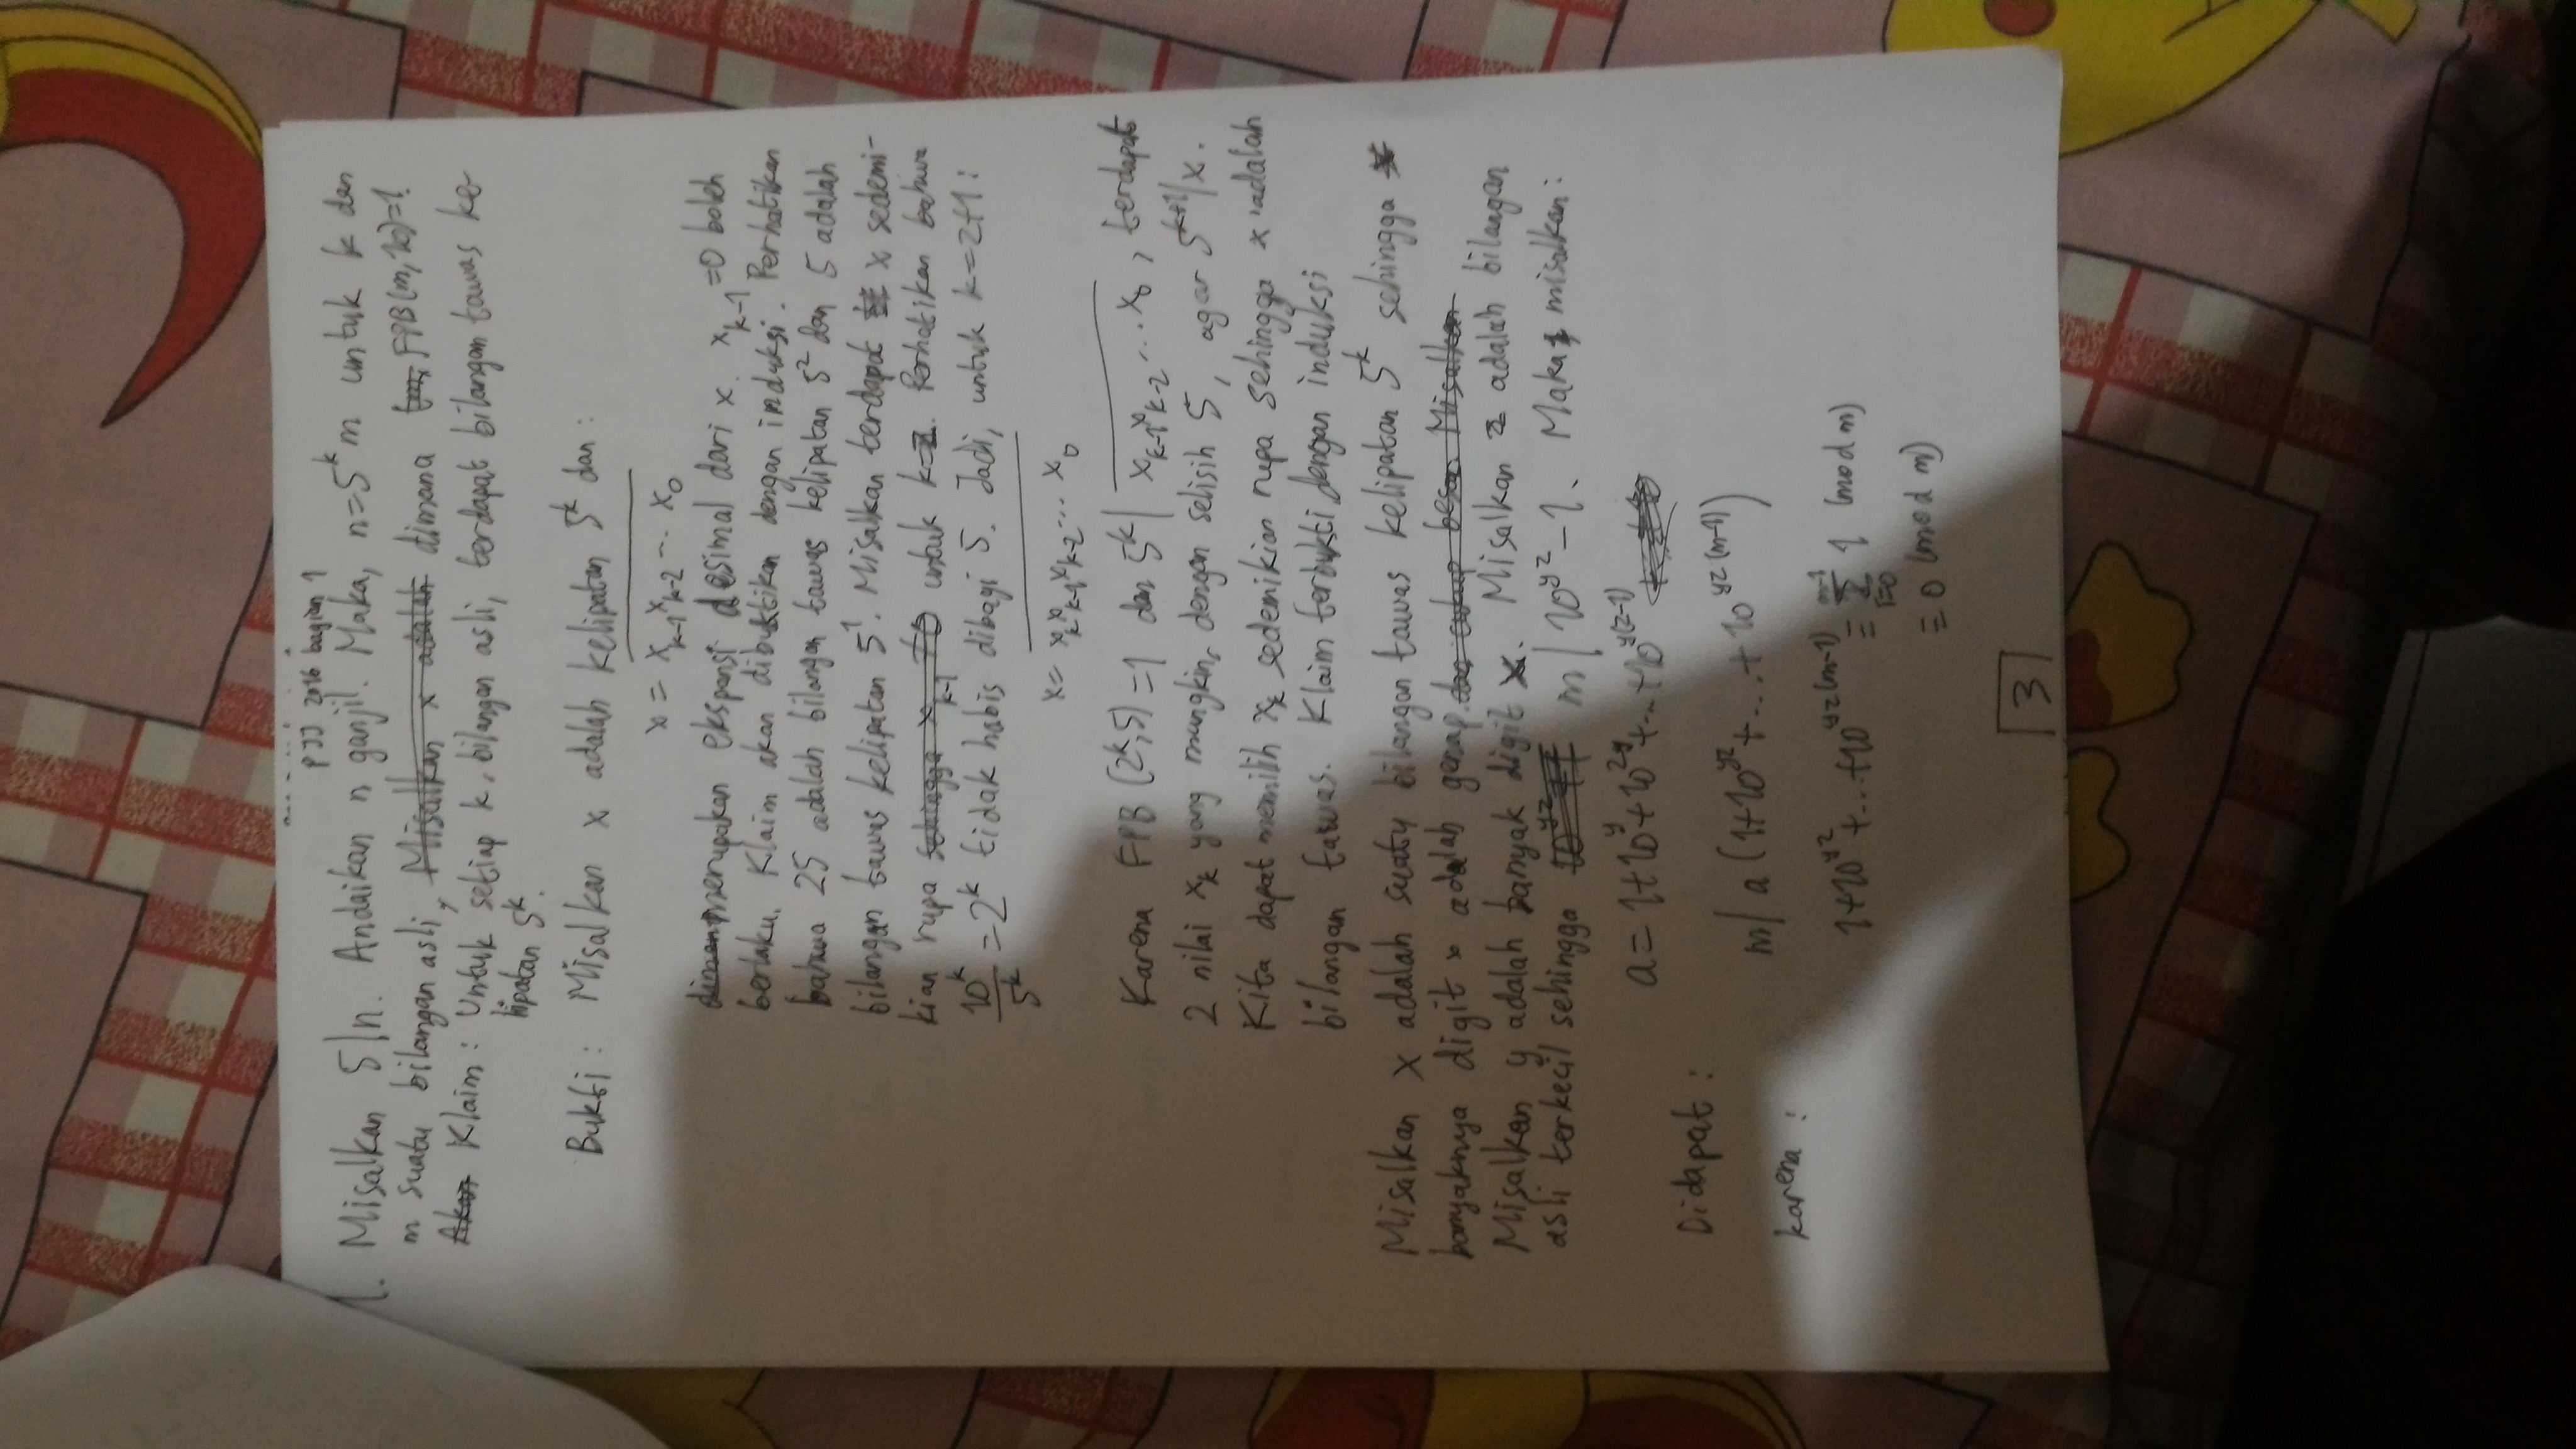 PJJ 2016 bagian 1
1. Misalkan 5|n. Andaikan n ganjil. Maka, n=5^k m untuk k dan
m suatu bilangan asli, Misalkan x adalah dimana FPB(m,10)=1.
Akan Klaim: Untuk setiap k, bilangan asli, terdapat bilangan tawas ke-
lipatan 5^k.
Bukti: Misalkan x adalah kelipatan 5^k dan:
x = x_{k-1}x_{k-2}... x_0
diman merupakan ekspansi desimal dari x. x_{k-1}=0 boleh
berlaku. Klaim akan dibuktikan dengan induksi. Perhatikan
bahwa 25 adalah bilangan tawas kelipatan 5^2 dan 5 adalah
bilangan tawas kelipatan 5^1. Misalkan terdapat x sedemi-
kian rupa sehingga x_{k-1} ≠0 untuk k=z. Perhatikan bahwa
10^k/5^k = 2^k tidak habis dibagi 5. Jadi, untuk k=z+1:
x= x_k x_{k-1} x_{k-2}... x_0
Karena FPB (2^k,5)=1 dan 5^k| x_{k-1}x_{k-2}...x_0, terdapat
2 nilai x_k yang mungkin, dengan selisih 5, agar 5^{k+1}|x.
Kita dapat memilih x_k sedemikian rupa sehingga x adalah
bilangan tawas. Klaim terbukti dengan induksi
Misalkan x adalah suatu bilangan tawas kelipatan 5^k sehingga
banyaknya digit x adalah genap. dan cukup besar. Misalkan
Misalkan y adalah banyak digit x. Misalkan z adalah bilangan
asli terkecil sehingga m | 10^{yz}-1. Maka, misalkan:
a = 1+10^y+10^{2y}+...+10^{y(z-1)}
Didapat:
m| a (1+10^{yz}+...+10^{yz(m-1)})
karena:
1+10^{yz}+...+10^{yz(m-1)} ≡ Σ_{i=0}^{m-1} 1 (mod m)
≡ 0 (mod m)
3